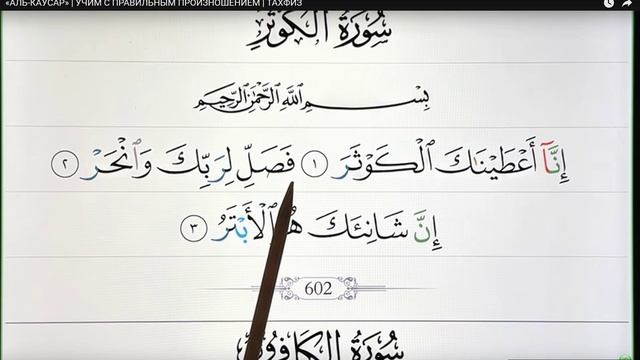 «АЛЬ-КАУСАР» | УЧИМ С ПРАВИЛЬНЫМ ПРОИЗНОШЕНИЕМ | ТАХФИЗ
سُورَةُ الْكَوْثَرِ
بِسْمِ اللَّهِ الرَّحْمَٰنِ الرَّحِيمِ
إِنَّآ أَعْطَيْنَٰكَ ٱلْكَوْثَرَ ١ فَصَلِّ لِرَبِّكَ وَٱنْحَرْ ٢
إِنَّ شَانِئَكَ هُوَ ٱلْأَبْتَرُ ٣
602
سُورَةُ الْكَافِرُونَ